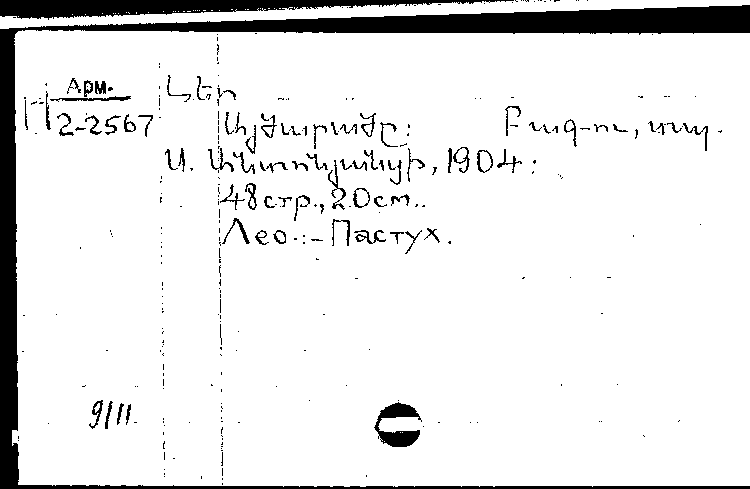 Арм. Լեո
2-2567 Այծարածը: Բագու, տպ.
Ա. Անտոնյանցի, 1904:
48стр., 20см.
Лео.:-Пастух.
9/11